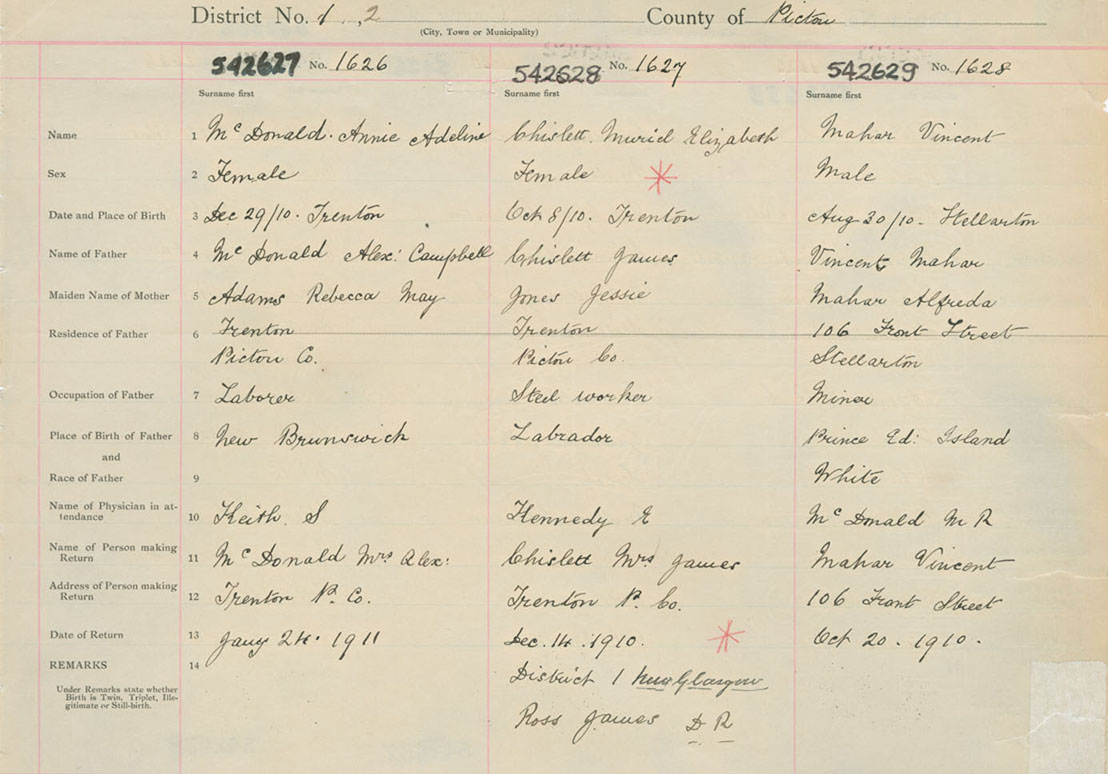 District No. 1, 2 County of Pictou
(City, Town or Municipality)
542627 No. 1626 542628 No. 1627 542629 No. 1628
Surname first Surname first Surname first
Name 1 Mc Donald. Annie Adeline Chislett. Muriel Elizabeth Mahar Vincent
Sex 2 Female Female Male
Date and Place of Birth 3 Dec 29/10. Trenton Oct 8/10. Trenton Aug 30/10. Stellarton
Name of Father 4 Mc Donald Alex: Campbell Chislett James Vincent Mahar
Maiden Name of Mother 5 Adams Rebecca May Jones Jessie Mahar Alfreda
Residence of Father 6 Trenton Trenton 106 Front Street
Pictou Co. Pictou Co. Stellarton
Occupation of Father 7 Laborer Steel worker Miner
Place of Birth of Father 8 New Brunswick Labrador Prince Ed: Island
and
Race of Father 9 White
Name of Physician in at-
tendance 10 Keith. S Kennedy E Mc Donald M R
Name of Person making
Return 11 Mc Donald Mrs Alex: Chislett Mrs James Mahar Vincent
Address of Person making
Return 12 Trenton P. Co. Trenton P. Co. 106 Front Street
Date of Return 13 Jany 24. 1911 Dec. 14. 1910. Oct 20. 1910.
REMARKS 14
District 1 New Glasgow
Under Remarks state whether
Birth is Twin, Triplet, Ille-
gitimate or Still-birth.
Ross James D R